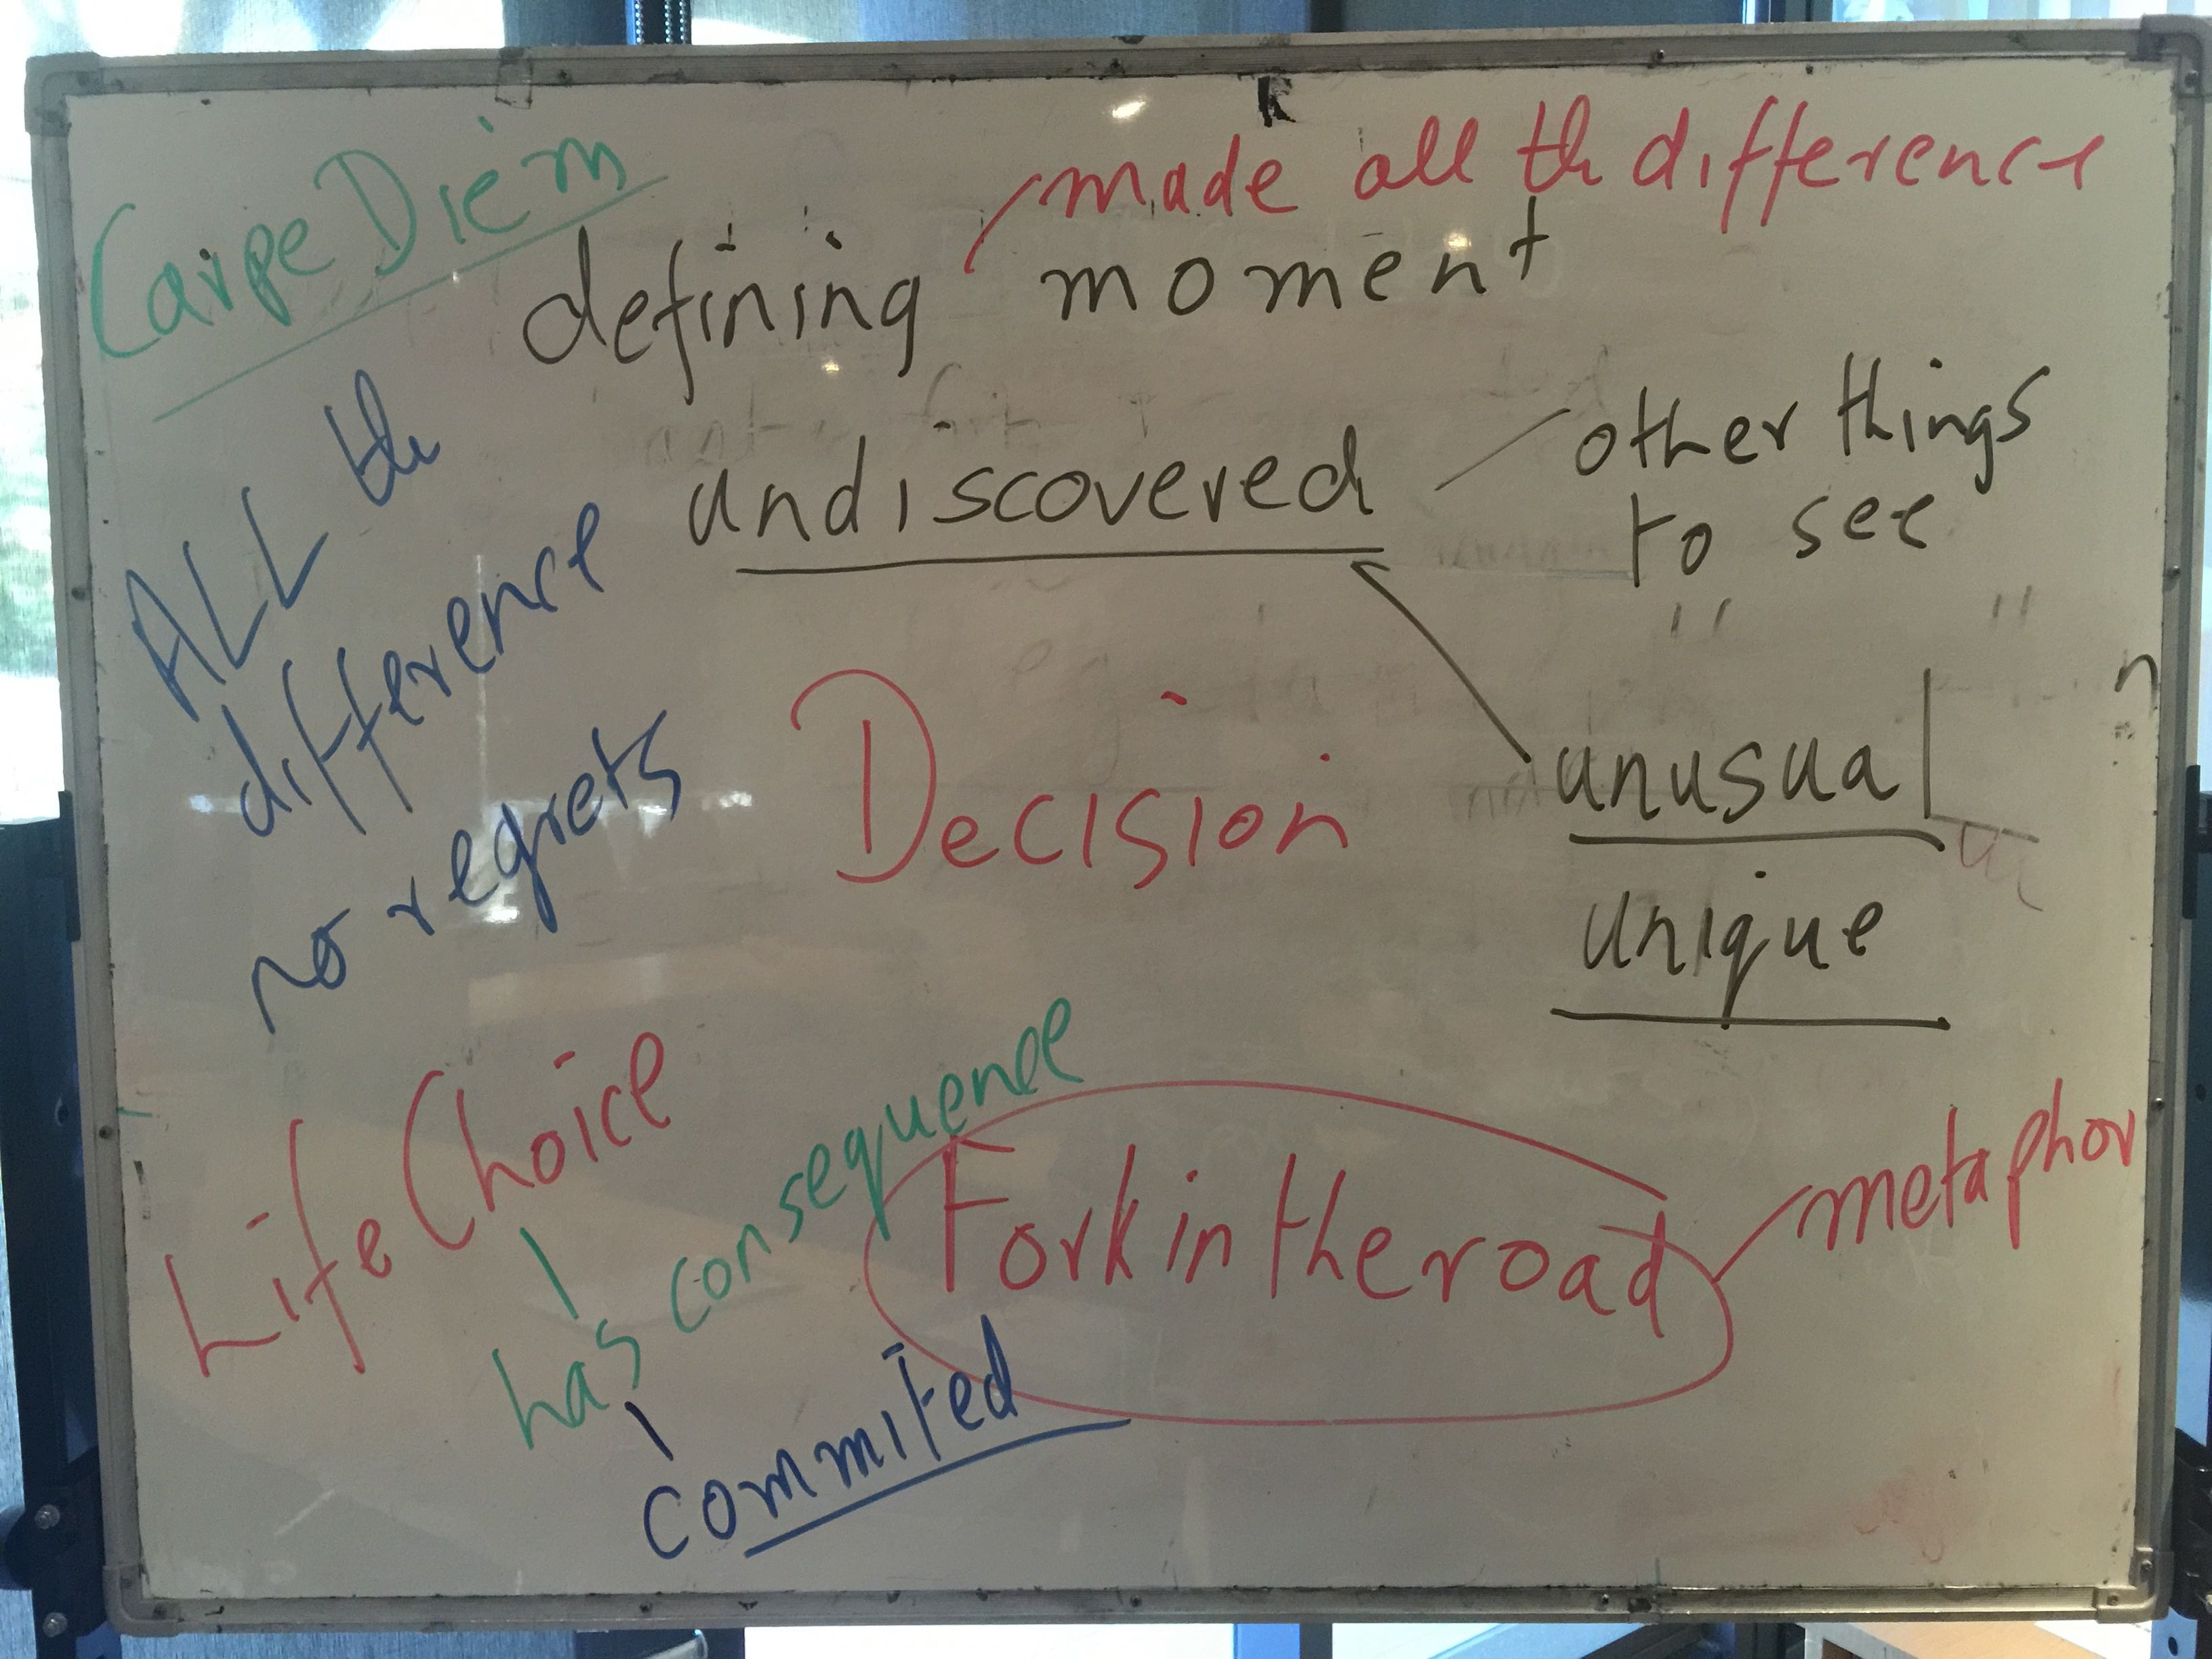 Carpe Diem
made all th difference
defining moment
ALL th
difference
no regrets
undiscovered
other things
to see
" "
Decision
unusual
unique
Life Choice
has consequence
commited
Fork in the road
metaphor